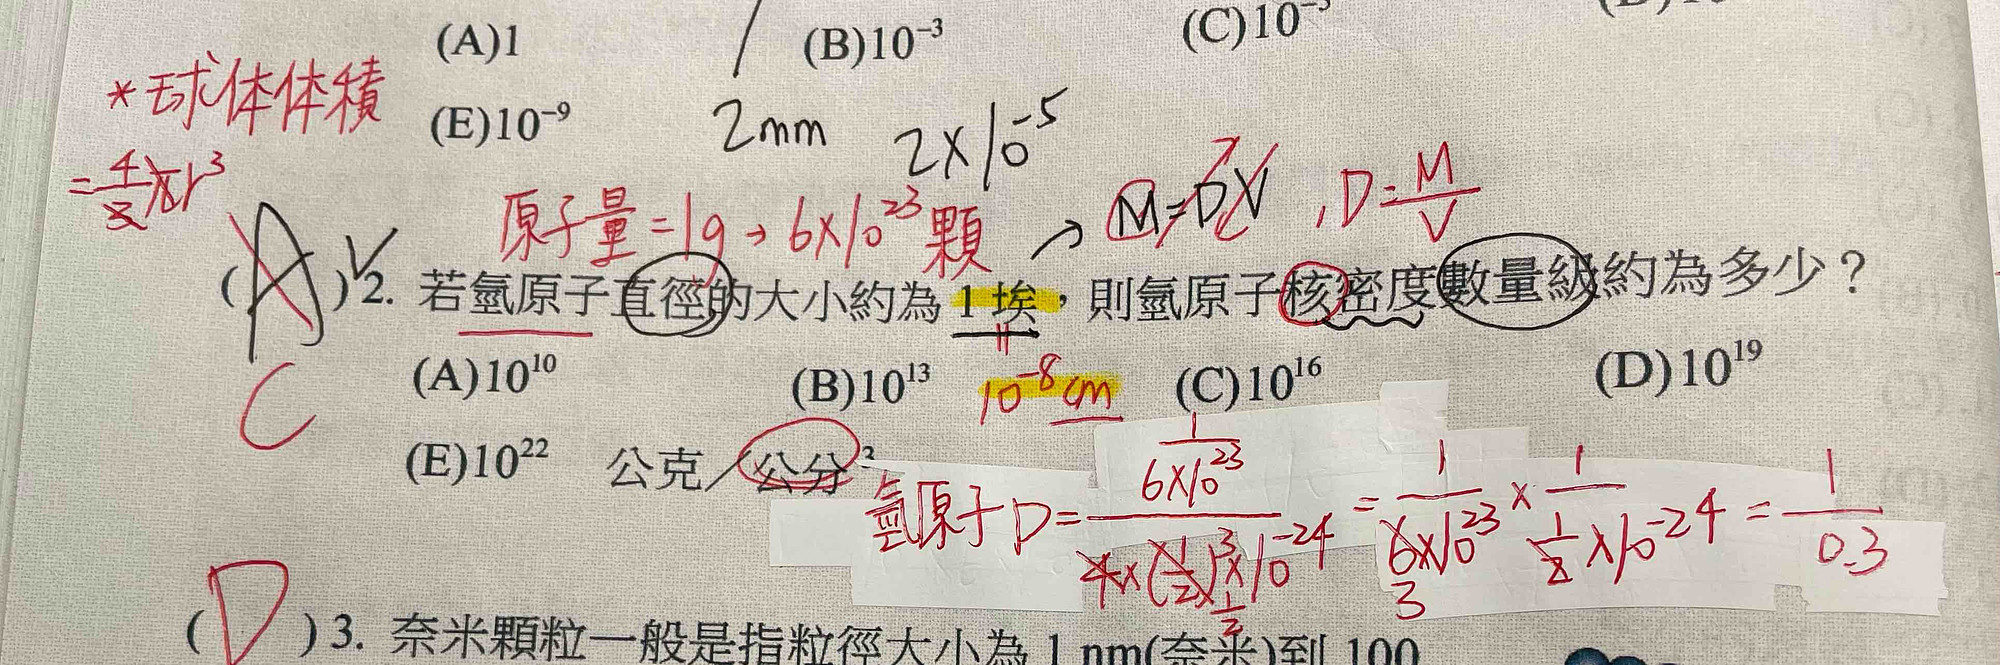 (A)1 (B)10⁻³ (C)10
*球体体積 (E)10⁻⁹ 2mm 2×10⁻⁵
=4/3πr³
原子量=1g→6×10²³顆 → M=DV , D=M/V
(A)2. 若氫原子直徑的大小約為 1 埃，則氫原子核密度數量級約為多少？
C (A)10¹⁰ (B)10¹³ 10⁻⁸cm (C)10¹⁶ (D)10¹⁹
(E)10²² 公克／公分³
氫原子D= (1/(6×10²³))/(4×(1/2)³×10⁻²⁴) = 1/(6×10²³) × 1/(1/2×10⁻²⁴) = 1/0.3
(D)3. 奈米顆粒一般是指粒徑大小為 1 nm(奈米)到 100